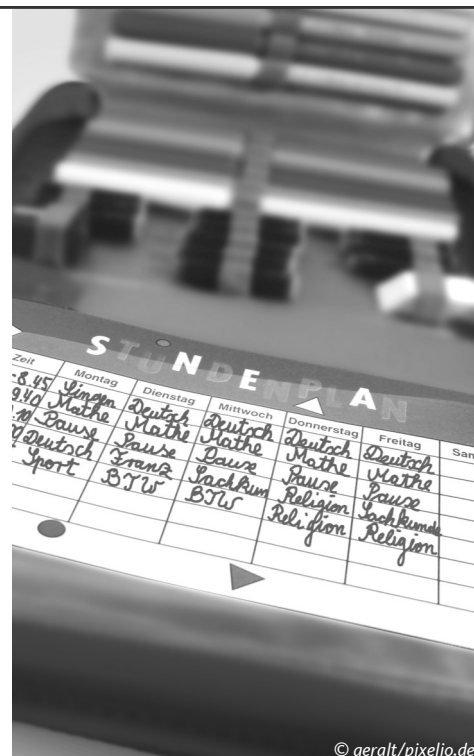 STUNDENPLAN
Zeit Montag Dienstag Mittwoch Donnerstag Freitag Sam
-8.45 Singen Deutsch Deutsch Deutsch Deutsch
9.40 Mathe Mathe Mathe Mathe Mathe
Pause Pause Pause Pause Pause
Deutsch Franz Sachkun Religion Sachkunde
Sport BTW BTW Religion Religion
© geralt/pixelio.de